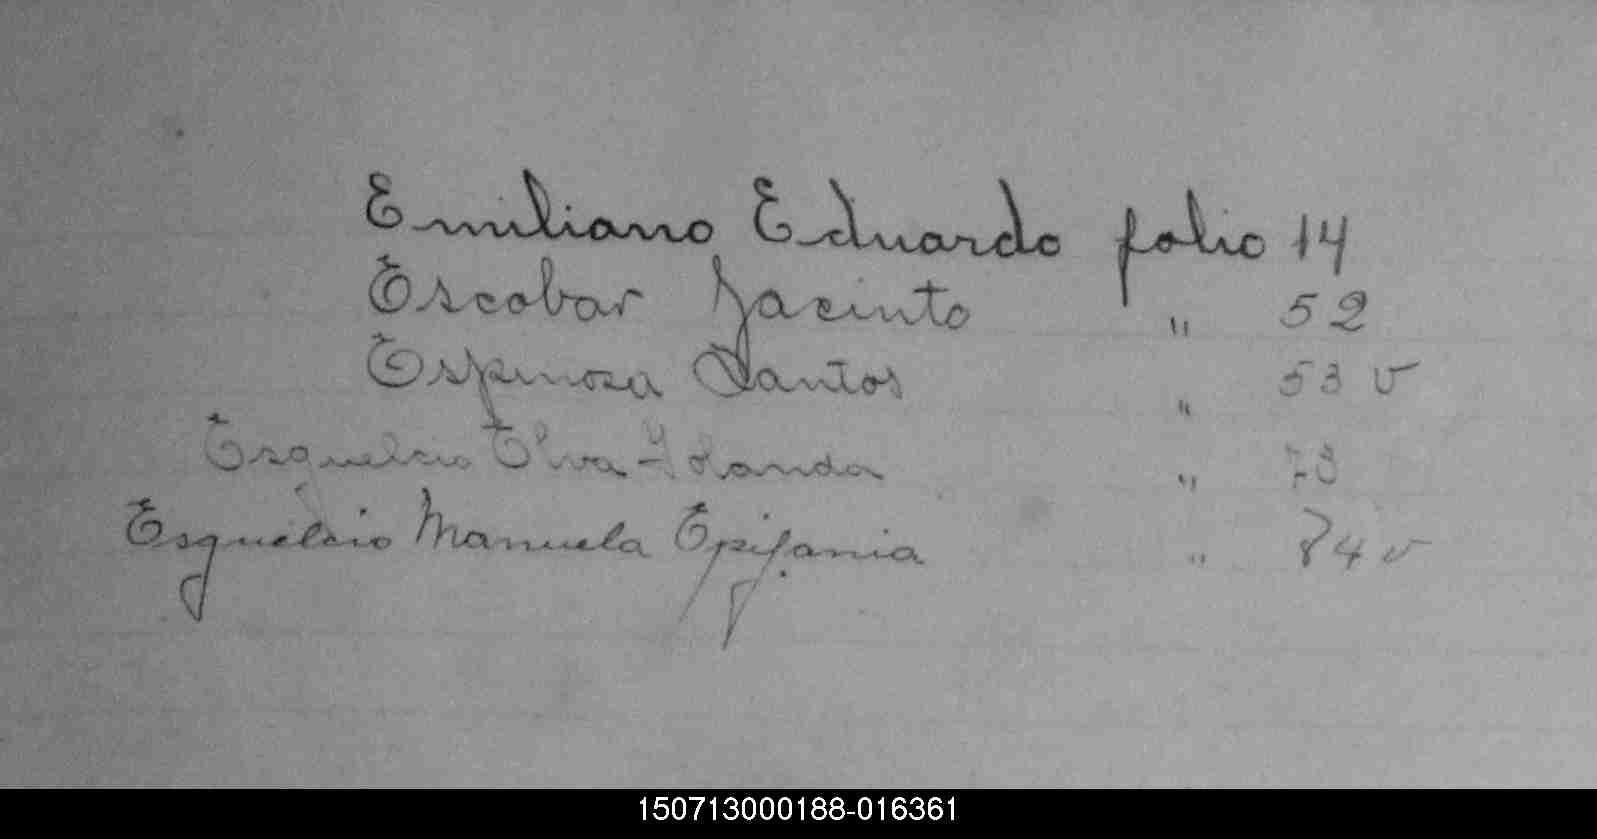 Emiliano Eduardo folio 14
Escobar Jacinto " 52
Espinosa Santos " 53 v
Esquelcio Elva Yolanda " 73
Esquelcio Manuela Epifania " 84 v
150713000188-016361